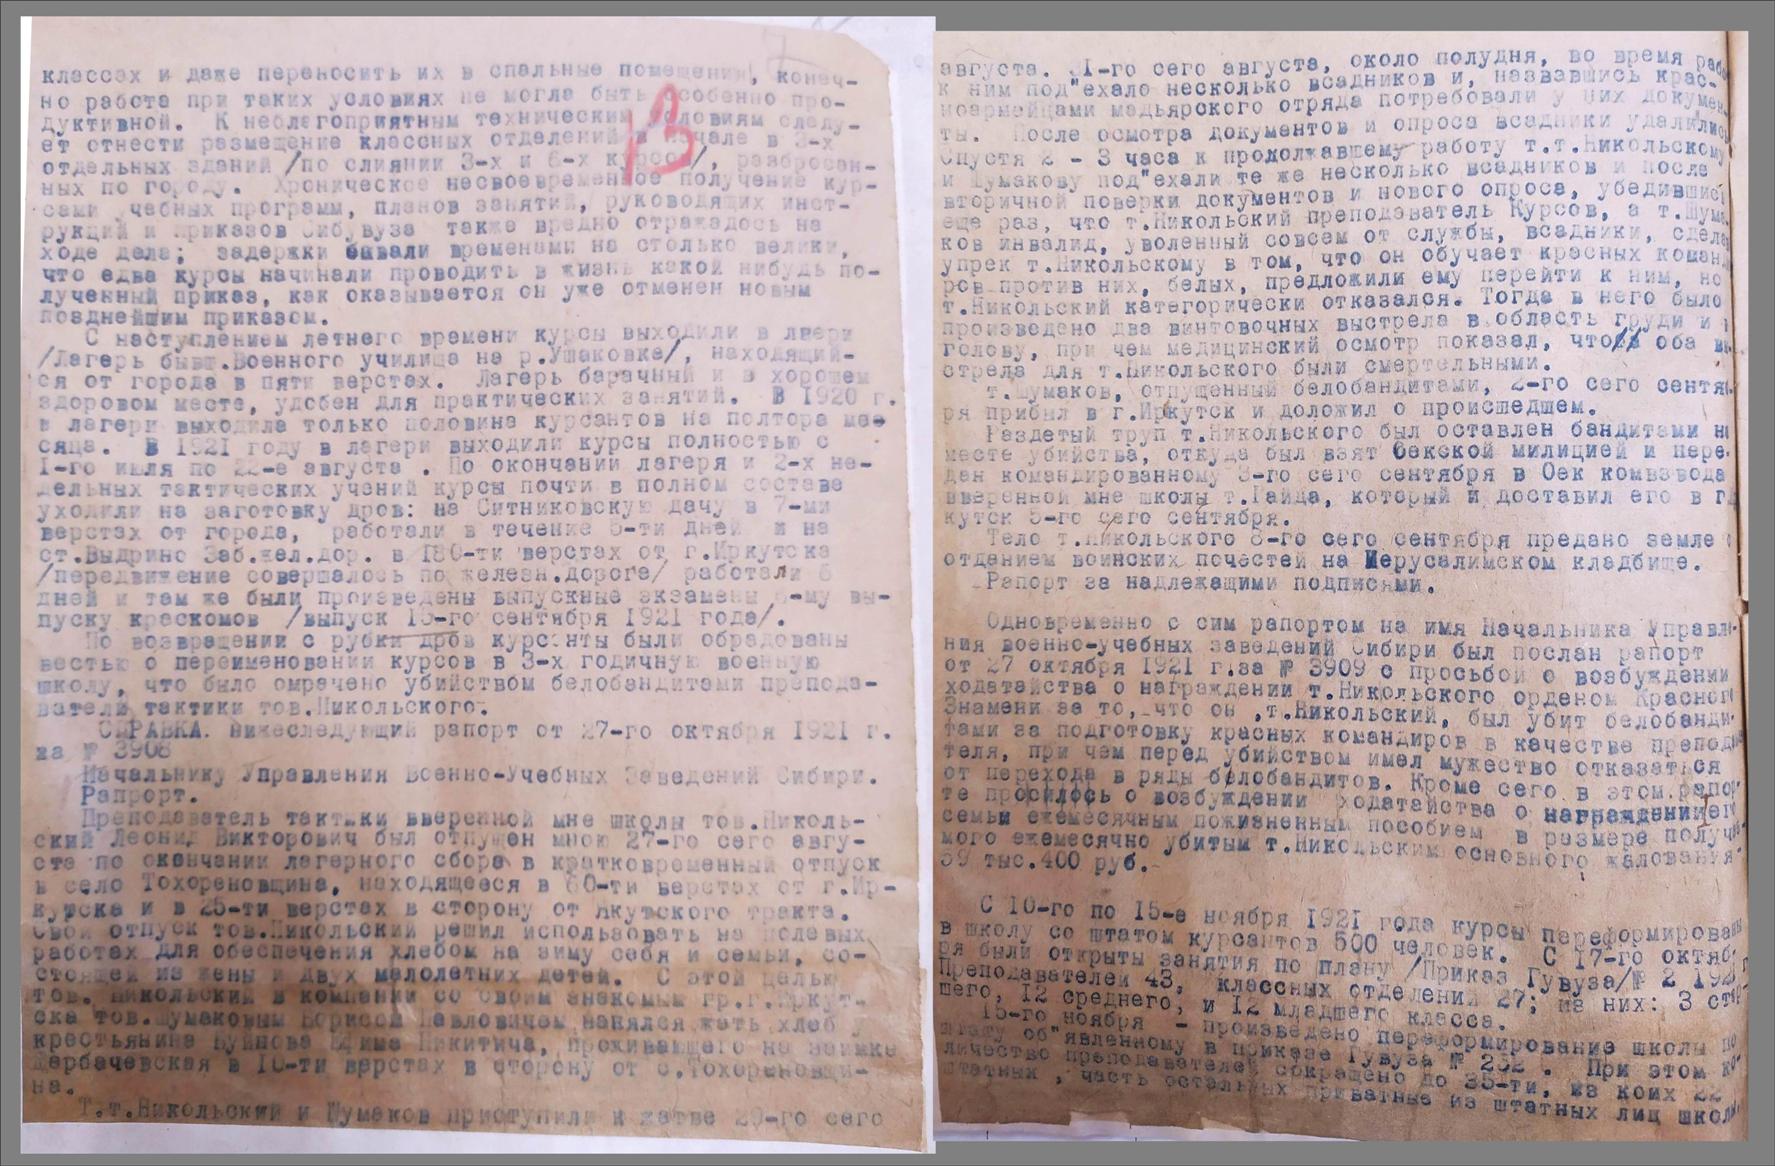 классах и даже переносить их в спальные помещения, конеч-
но работа при таких условиях не могла быть особенно про-
дуктивной. К неблагоприятным техническим условиям следу-
ет отнести размещение классных отделений в начале в 3-х
отдельных зданий /по слиянии 3-х и 6-х курсов/, разбросан-
ных по городу. Хроническое несвоевременное получение кур-
сами учебных программ, планов занятий, руководящих инст-
рукций и приказов Сибувуза также вредно отражалось на
ходе дела; задержки бывали временами на столько велики,
что едва курсы начинали проводить в жизнь какой нибудь по-
лученный приказ, как оказывается он уже отменен новым
позднейшим приказом.
С наступлением летнего времени курсы выходили в лагери
/Лагерь бывш.Военного училища на р.Ушаковке/, находящий-
ся от города в пяти верстах. Лагерь барачный и в хорошем
здоровом месте, удобен для практических занятий. В 1920 г.
в лагери выходила только половина курсантов на полтора ме-
сяца. В 1921 году в лагери выходили курсы полностью с
1-го июля по 22-е августа . По окончании лагеря и 2-х не-
дельных тактических учений курсы почти в полном составе
уходили на заготовку дров: на Ситниковскую дачу в 7-ми
верстах от города, работали в течение 5-ти дней и на
ст.Выдрино Заб.жел.дор. в 180-ти верстах от г.Иркутска
/передвижение совершалось по железн.дороге/ работали 6
дней и там же были произведены выпускные экзамены 6-му вы-
пуску краскомов /выпуск 15-го сентября 1921 года/.
По возвращении с рубки дров курсанты были обрадованы
вестью о переименовании курсов в 3-х годичную военную
школу, что было омрачено убийством белобандитами препода-
вателя тактики тов.Никольского.
СПРАВКА. Нижеследующий рапорт от 27-го октября 1921 г.
за № 3908
Начальнику Управления Военно-Учебных Заведений Сибири.
Рапрорт.
Преподаватель тактики вверенной мне школы тов.Николь-
ский Леонид Викторович был отпущен мною 27-го сего авгу-
ста по окончании лагерного сбора в кратковременный отпуск
в село Тохореновщина, находящееся в 60-ти верстах от г.Ир-
кутска и в 25-ти верстах в сторону от Якутского тракта.
Свой отпуск тов.Никольский решил использовать на полевых
работах для обеспечения хлебом на зиму себя и семьи, со-
стоящей из жены и двух малолетних детей. С этой целью
тов. Никольский в компании со своим знакомым гр.г.Иркут-
ска тов.Шумаковым Борисом Павловичем нанялся жать хлеб у
крестьянина Буйнова Ефима Никитича, проживающего на заимке
Щербачевская в 10-ти верстах в сторону от с.Тохореновщи-
на.
Т.т.Никольский и Шумаков приступили к жатве 29-го сего
13
августа. 31-го сего августа, около полудня, во время рабо
к ним под"ехало несколько всадников и, назвавшись крас-
ноармейцами мадьярского отряда потребовали у них докумен-
ты. После осмотра документов и опроса всадники удалились
Спустя 2 - 3 часа к продолжавшему работу т.т.Никольскому
и Шумакову под"ехали те же несколько всадников и после
вторичной поверки документов и нового опроса, убедившись
еще раз, что т.Никольский преподаватель Курсов, а т.Шума
ков инвалид, уволенный совсем от службы, всадники, сдела
упрек т.Никольскому в том, что он обучает красных команд
ров против них, белых, предложили ему перейти к ним, но
т.Никольский категорически отказался. Тогда в него было
произведено два винтовочных выстрела в область груди и в
голову, при чем медицинский осмотр показал, что оба вы
стрела для т.Никольского были смертельными.
т.Шумаков, отпущенный белобандитами, 2-го сего сентяб
ря прибыл в г.Иркутск и доложил о происшедшем.
Раздетый труп т.Никольского был оставлен бандитами на
месте убийства, откуда был взят Оекской милицией и пере-
дан командированному 3-го сего сентября в Оек комвзвода
вверенной мне школы т.Гайда, который и доставил его в г.И
кутск 5-го сего сентября.
Тело т.Никольского 8-го сего сентября предано земле с
отданием воинских почестей на Иерусалимском кладбище.
Рапорт за надлежащими подписями.
Одновременно с сим рапортом на имя Начальника Управле-
ния военно-учебных заведений Сибири был послан рапорт
от 27 октября 1921 г.за № 3909 с просьбой о возбуждении
ходатайства о награждении т.Никольского орденом Красного
Знамени за то, что он ,т.Никольский, был убит белобанди-
тами за подготовку красных командиров в качестве преподав
теля, при чем перед убийством имел мужество отказаться
от перехода в ряды белобандитов. Кроме сего в этом рапор-
те просилось о возбуждении ходатайства о награждении его
семьи ежемесячным пожизненным пособием в размере получа-
мого ежемесячно убитым т.Никольским основного жалования-
39 тыс.400 руб.-
С 10-го по 15-е ноября 1921 года курсы переформированы
в школу со штатом курсантов 500 человек. С 17-го октяб-
ря были открыты занятия по плану /Приказ Гувуза/№ 2 1921 г
Преподавателей 43, классных отделений 27; из них: 3 стар-
шего, 12 среднего, и 12 младшего класса.
15-го ноября - произведено переформирование школы по
штату об"явленному в приказе Гувуза № 252 . При этом ко-
личество преподавателей сокращено до 35-ти, из коих 22
штатных , часть остальных приватные из штатных лиц школы.